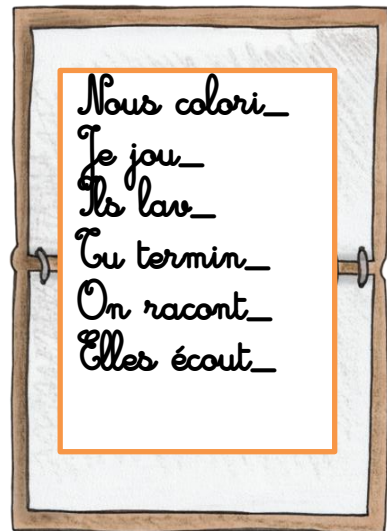 Nous colori_
Je jou_
Ils lav_
Tu termin_
On racont_
Elles écout_